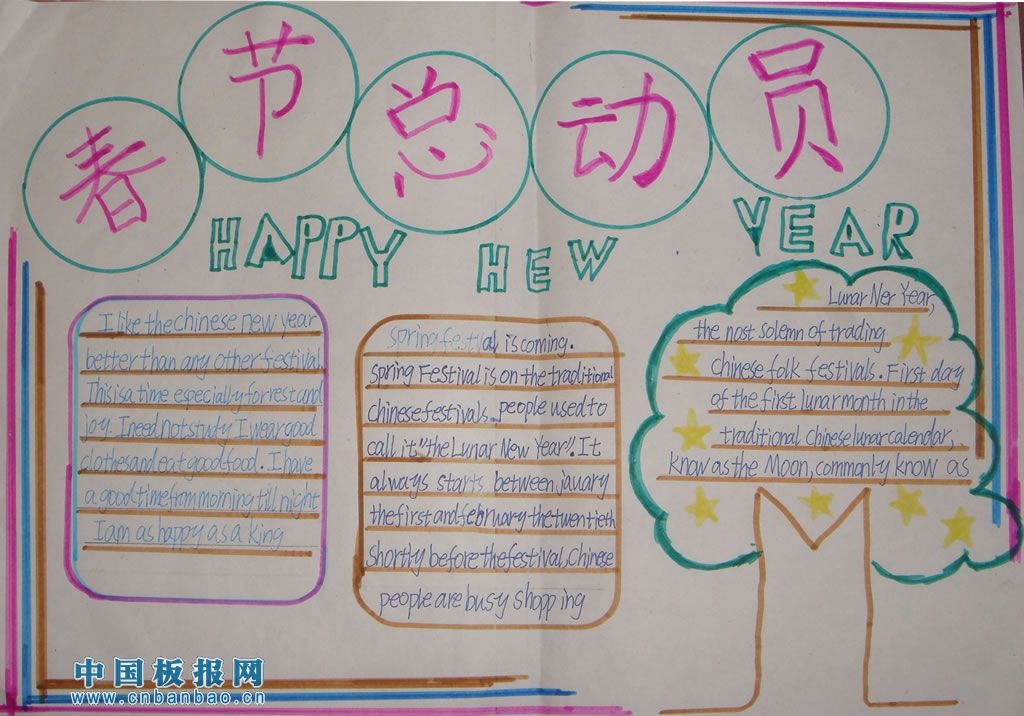 春节总动员
HAPPY HEW YEAR
I like the chinese new year
better than any other festival.
This is a time especially for rest and
joy. I need not study I wear good
clothes and eat good food. I have
a good time from morning till night
I am as happy as a king
spring festival is coming.
spring Festival is on the traditional
chinese festivals. people used to
call it "the Lunar New Year". It
always starts between january
the first and february the twentieth
shortly before the festival, Chinese
people are busy shopping
Lunar Ner Year,
the nost solemn of trading
chinese folk festivals. First day
of the first lunar month in the
traditional chinese lunar calendar,
know as the Moon, commonly know as
中国板报网
www.cnbanbao.cn